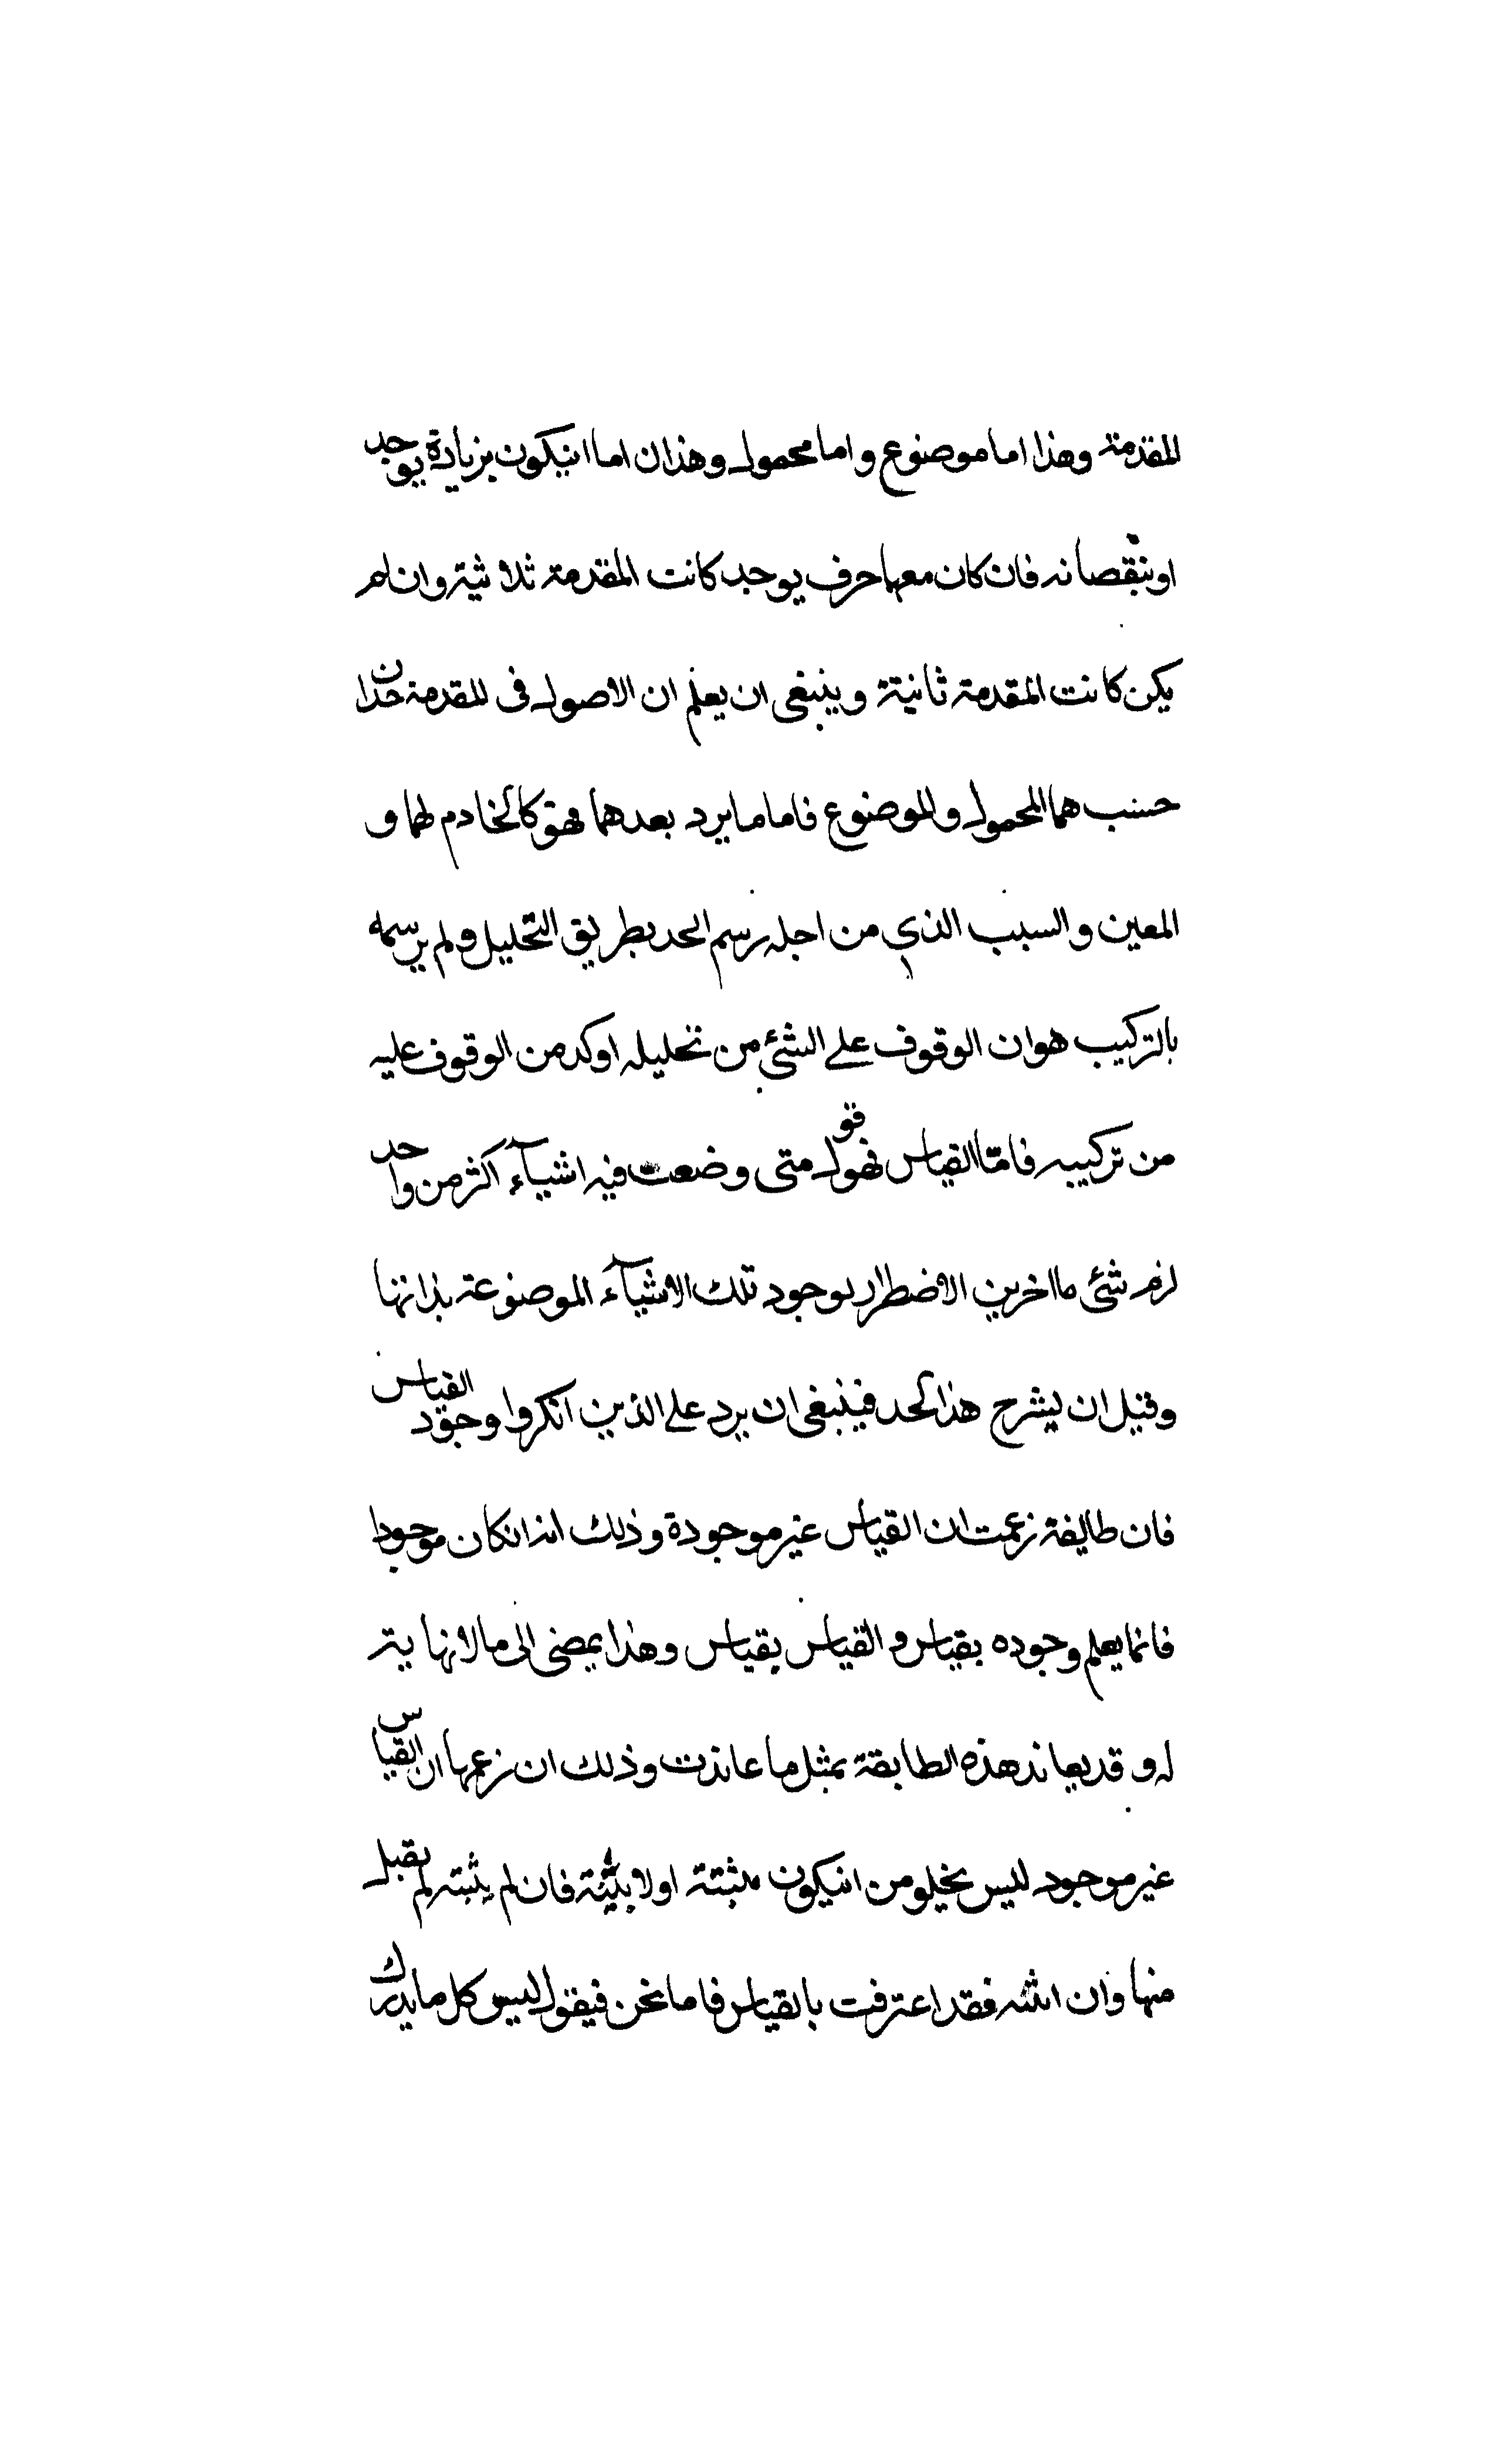 المقدمة وهذا اما موضوع واما محمول وهذان اما انيكون بزيادة يوجد
او بنقصانه فان كان معها حرف يوجد كانت المقدمة ثلاثية وان لم
يكن كانت المقدمة ثانية وينبغى ان يعلم ان الاصول فى المقدمة حدان
حسب هما المحمول والموضوع فاما ما يرد بعدهما فهو كالخادم لهما و
المعين والسبب الذي من اجله رسم الحد بطريق التحليل ولم يرسمه
بالتركيب هو ان الوقوف على الشئ من تحليله اوكد من الوقوف عليه
من تركيبه فامّا القياس فهو قول متى وضعت فيه اشيآء اكثر من واحد
لزم شئ ما اخر من الاضطرار لوجود تلك الاشيآء الموضوعة بذاتها
وقبل ان يشرح هذا الحد فينبغى ان يرد على الذين انكروا وجود القياس
فان طايفة زعمت ان القياس غير موجودة وذلك انه انكان موجودا
فانما يعلم وجوده بقياس والقياس بقياس وهذا يمضى الى ما لا نهاية
له وقد يعاند هذه الطايفة بمثل ما عاندت وذلك ان زعمها ان القياس
غير موجود ليس يخلو من انيكون مثبتة اولا بثبتة فان لم يثبته لم يقبل
منها وان اثبته فقد اعترفت بالقياس فاما نحن فيقول ليس كل ما يدرك